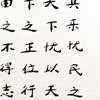 其乐忧民之
天下忧以天
下之正位行
由之不得志